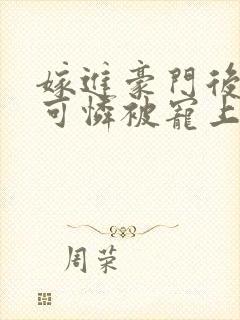 嫁進豪門後
可憐被寵上
周荣